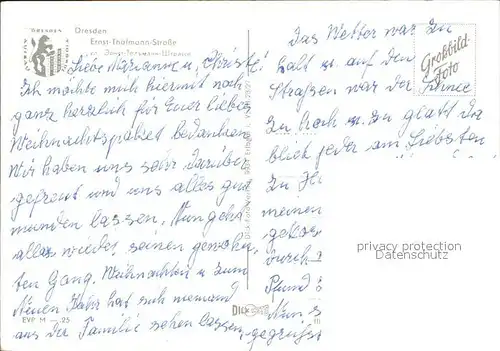 DRESDEN
Dresden
Ernst-Thälmann-Straße
Liebe Marianne u. Christl!
Ich möchte mich hiermit noch
ganz herzlich für Euer liebes
Weihnachtspaket bedanken.
Wir haben uns sehr darüber
gefreut und uns alles gut
munden lassen. Nun geht
alles wieder seinen gewohn-
ten Gang. Weihnachten u. zum
Neuen Jahr hat sich niemand
aus der Familie sehen lassen,
EVP M —.25
DICK
Das Wetter war zu
kalt u. auf den
Straßen war der Schnee
zu hoch u. zu glatt da
blieb jeder am liebsten
zu H
meinen
gekos
durch
Pfund
Nun s
gegrüßt
Großbild-
Foto
privacy protection
Datenschutz